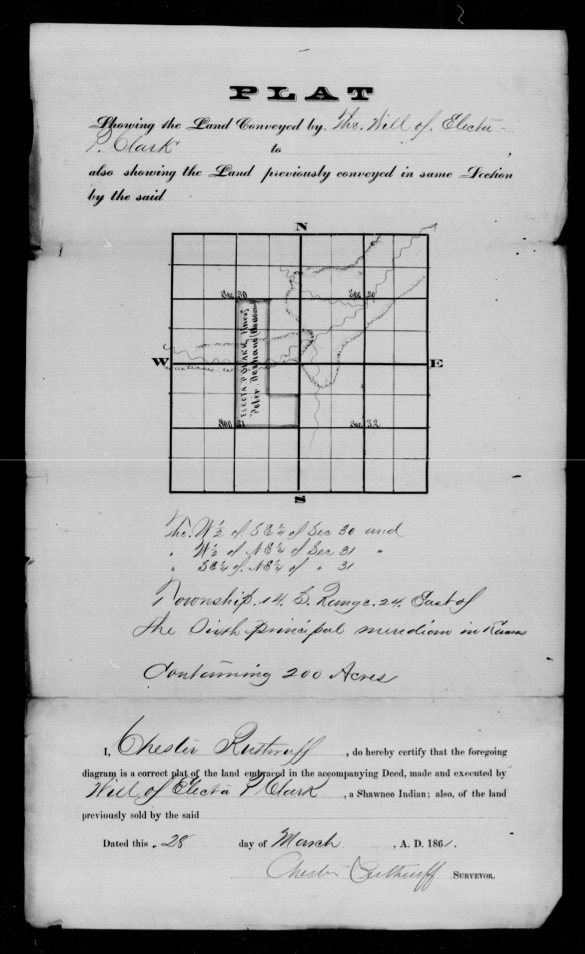 PLAT
Showing the Land Conveyed by The. Will of. Electa
P. Clark to ,
also showing the Land previously conveyed in same Section
by the said
N
Sec 30 Sec 29
ELECTA. P. CLARK
Peter
W E
Sec 31 Sec. 32
S
The. W ½ of S E ¼ of Sec 30 and
" W ½ of N E ¼ of Sec 31 "
" S E ¼ of. N E ¼ of " 31
Township. 14. S. Range. 24. East of
the Sixth principal meridian in Kansas
Containing 200 Acres
I, Chester Ruthruff , do hereby certify that the foregoing
diagram is a correct plat of the land embraced in the accompanying Deed, made and executed by
Will of Electa P Clark , a Shawnee Indian; also, of the land
previously sold by the said
Dated this . 28 day of March , A. D. 186 .
Chester Ruthruff SURVEYOR.